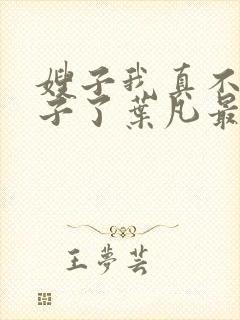 嫂子我真不
子了葉凡最
王夢芸